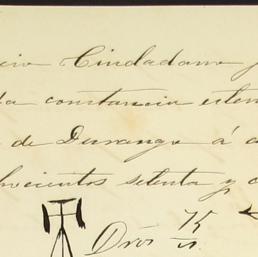 cio Ciudadano y
la constancia esten
de Durango á
hocientos setenta y c
Dros